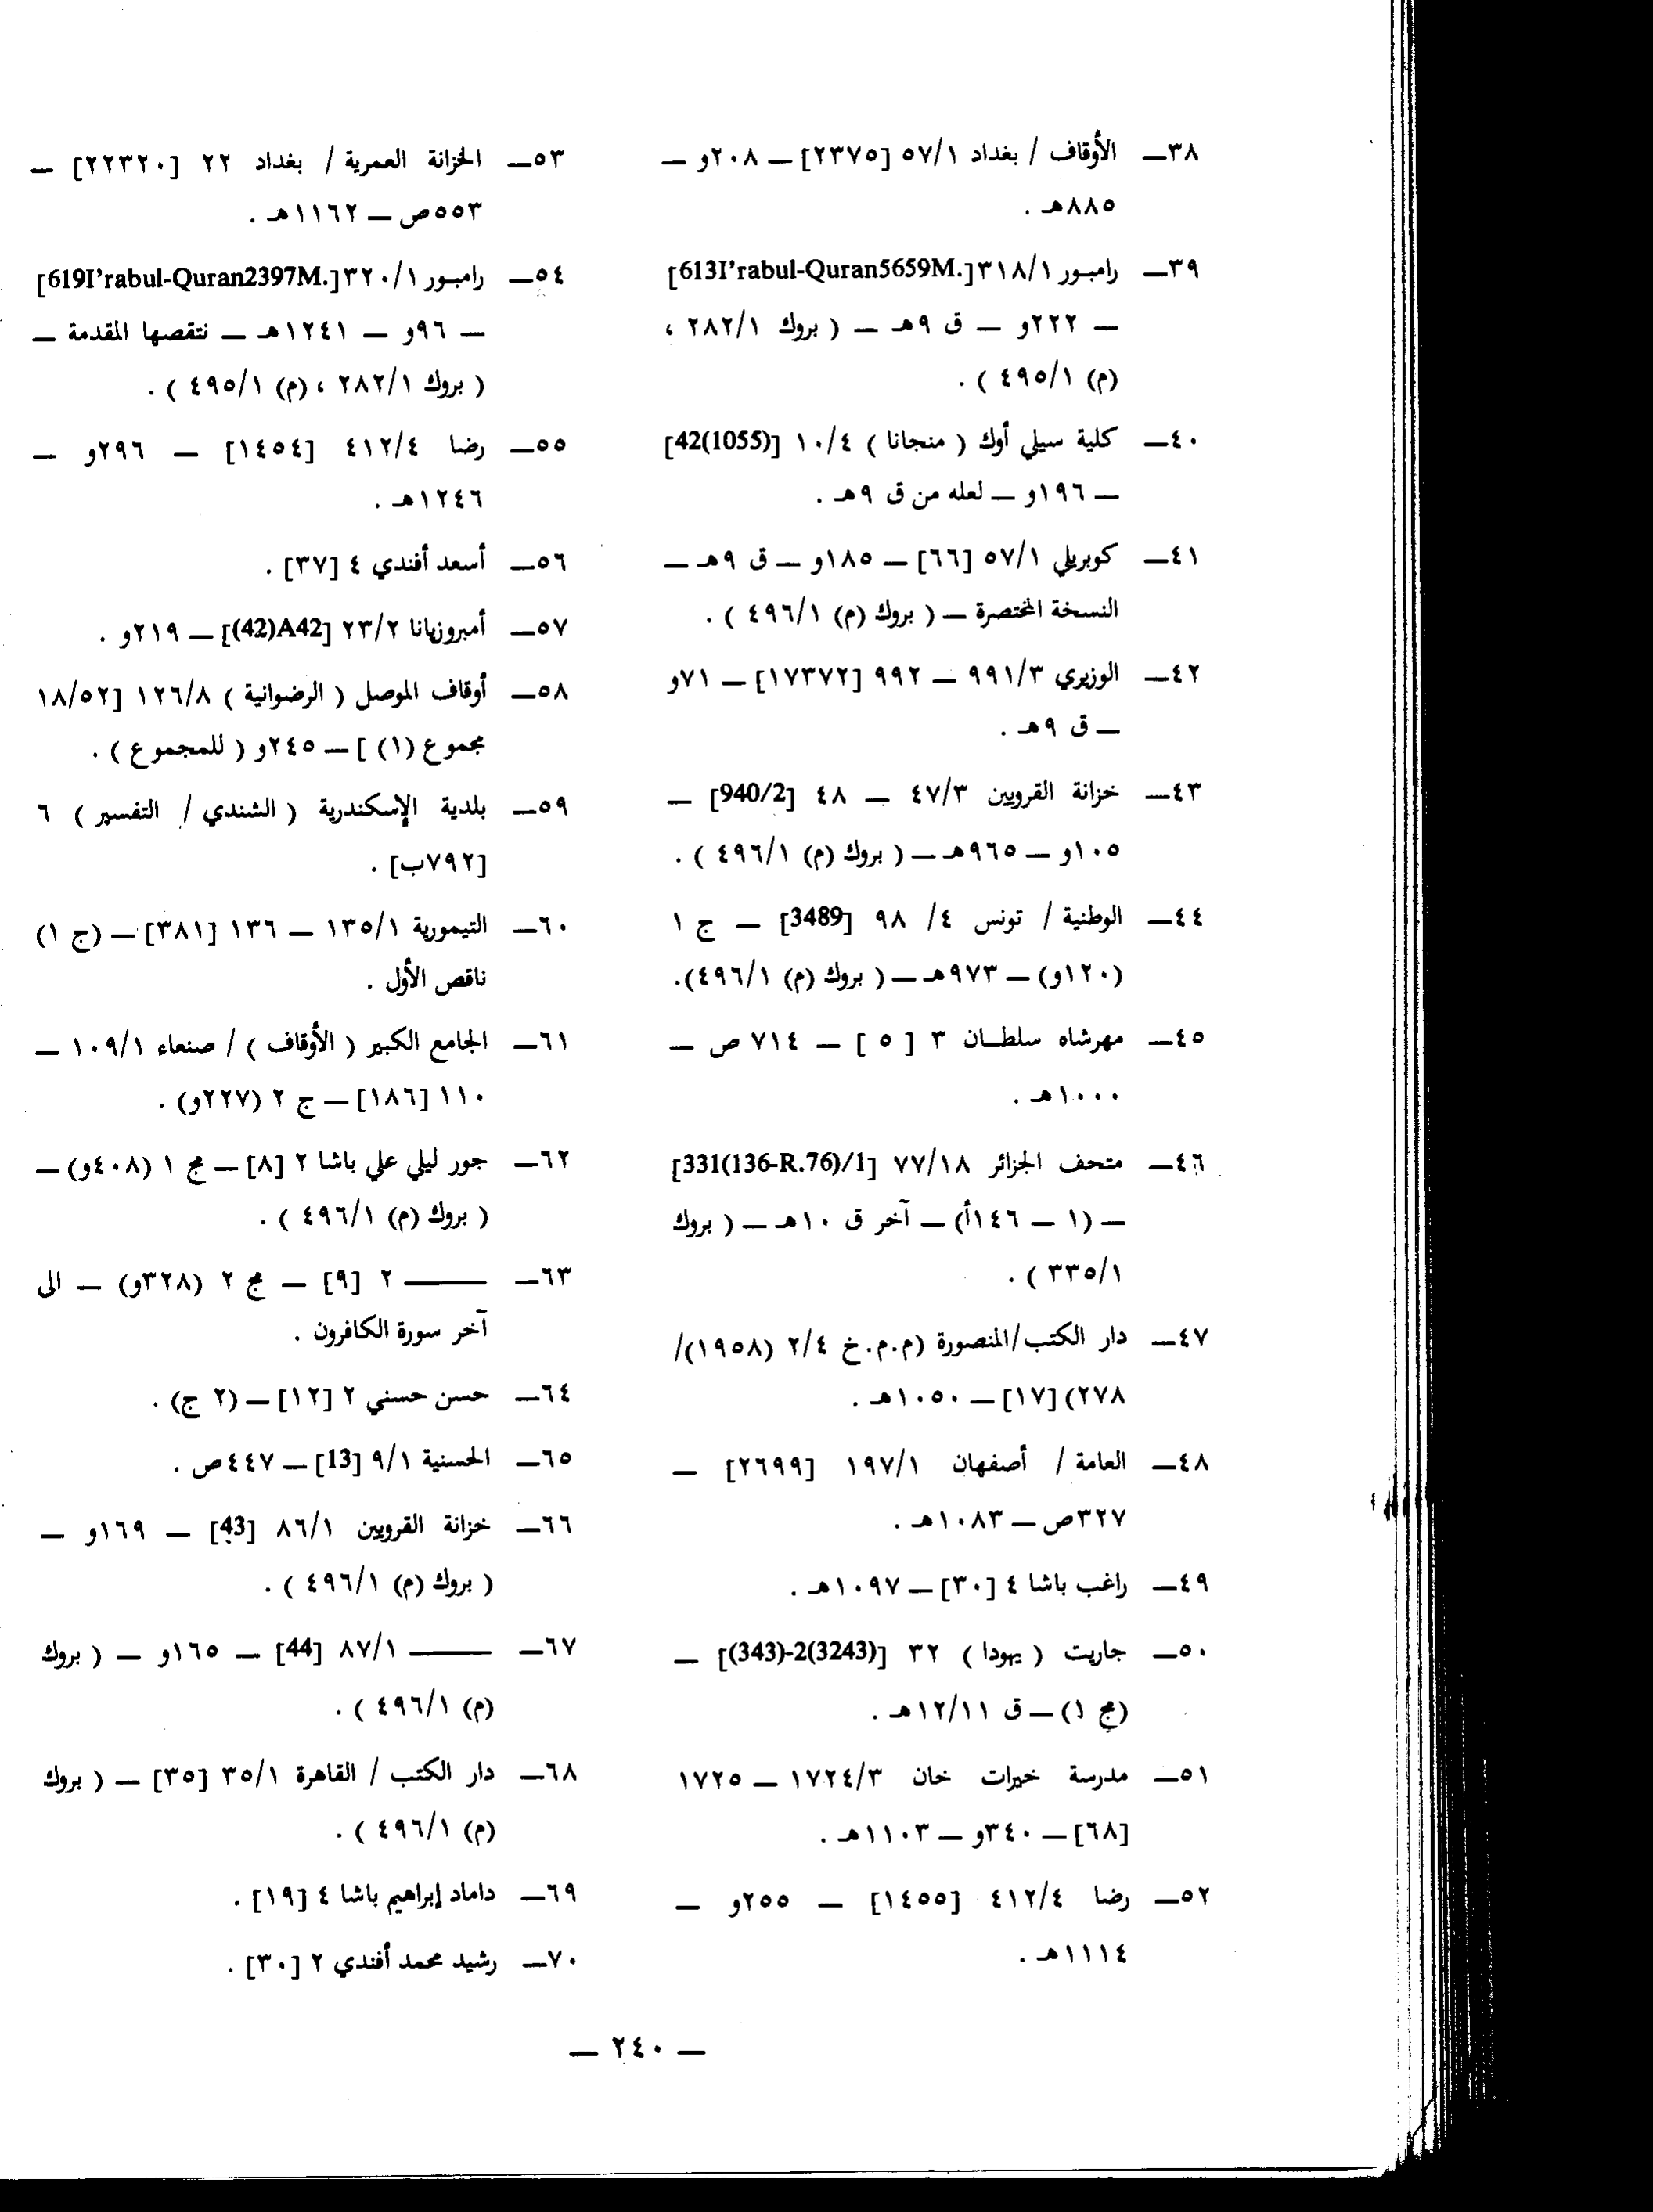 ٣٨ــ الأوقاف / بغداد ٥٧/١ [٢٣٧٥] ــ ٢٠٨و ــ
٨٨٥هـ .
٣٩ــ رامبور ٣١٨/١ [613I'rabul-Quran5659M.]
ــ ٢٢٢و ــ ق ٩هـ ــ ( بروك ٢٨٢/١ ،
(م) ٤٩٥/١ ) .
٤٠ــ كلية سيلي أوك ( منجانا ) ١٠/٤ [42(1055)]
ــ ١٩٦و ــ لعله من ق ٩هـ .
٤١ــ كوبريلي ٥٧/١ [٦٦] ــ ١٨٥و ــ ق ٩هـ ــ
النسخة المختصرة ــ ( بروك (م) ٤٩٦/١ ) .
٤٢ــ الوزيري ٩٩١/٣ ــ ٩٩٢ [١٧٣٧٢] ــ ٧١و
ــ ق ٩هـ .
٤٣ــ خزانة القرويين ٤٧/٣ ــ ٤٨ [940/2] ــ
١٠٥و ــ ٩٦٥هـ ــ ( بروك (م) ٤٩٦/١ ) .
٤٤ــ الوطنية / تونس ٤/ ٩٨ [3489] ــ ج ١
(١٢٠و) ــ ٩٧٣هـ ــ ( بروك (م) ٤٩٦/١).
٤٥ــ مهرشاه سلطــان ٣ [ ٥ ] ــ ٧١٤ ص ــ
١٠٠٠هـ .
٤٦ــ متحف الجزائر ٧٧/١٨ [331(136-R.76)/1]
ــ (١ ــ ١٤٦أ) ــ آخر ق ١٠هـ ــ ( بروك
٣٣٥/١ ) .
٤٧ــ دار الكتب/المنصورة (م.م.خ ٢/٤ (١٩٥٨)/
٢٧٨) [١٧] ــ ١٠٥٠هـ .
٤٨ــ العامة / أصفهان ١٩٧/١ [٢٦٩٩] ــ
٣٢٧ص ــ ١٠٨٣هـ .
٤٩ــ راغب باشا ٤ [٣٠] ــ ١٠٩٧هـ .
٥٠ــ جاريت ( يهودا ) ٣٢ [(343)-2(3243)] ــ
(مج ١) ــ ق ١٢/١١هـ .
٥١ــ مدرسة خيرات خان ١٧٢٤/٣ ــ ١٧٢٥
[٦٨] ــ ٣٤٠و ــ ١١٠٣هـ .
٥٢ــ رضا ٤١٢/٤ [١٤٥٥] ــ ٢٥٥و ــ
١١١٤هـ .
٥٣ــ الخزانة العمرية / بغداد ٢٢ [٢٢٣٢٠] ــ
٥٥٣ص ــ ١١٦٢هـ .
٥٤ــ رامبور ٣٢٠/١ [619I'rabul-Quran2397M.]
ــ ٩٦و ــ ١٢٤١هـ ــ نتقصها المقدمة ــ
( بروك ٢٨٢/١ ، (م) ٤٩٥/١ ) .
٥٥ــ رضا ٤١٢/٤ [١٤٥٤] ــ ٢٩٦و ــ
١٢٤٦هـ .
٥٦ــ أسعد أفندي ٤ [٣٧] .
٥٧ــ أمبروزيانا ٢٣/٢ [(42)A42] ــ ٢١٩و .
٥٨ــ أوقاف الموصل ( الرضوانية ) ١٢٦/٨ [١٨/٥٢
مجموع (١) ] ــ ٢٤٥و ( للمجموع ) .
٥٩ــ بلدية الإسكندرية ( الشندي / التفسير ) ٦
[٧٩٢ب] .
٦٠ــ التيمورية ١٣٥/١ ــ ١٣٦ [٣٨١] ــ (ج ١)
ناقص الأول .
٦١ــ الجامع الكبير ( الأوقاف ) / صنعاء ١٠٩/١ ــ
١١٠ [١٨٦] ــ ج ٢ (٢٢٧و) .
٦٢ــ جور ليلي علي باشا ٢ [٨] ــ مج ١ (٤٠٨و) ــ
( بروك (م) ٤٩٦/١ ) .
٦٣ــ ــــــ ٢ [٩] ــ مج ٢ (٣٢٨و) ــ الى
آخر سورة الكافرون .
٦٤ــ حسن حسني ٢ [١٢] ــ (٢ ج) .
٦٥ــ الحسنية ٩/١ [13] ــ ٤٤٧ص .
٦٦ــ خزانة القرويين ٨٦/١ [43] ــ ١٦٩و ــ
( بروك (م) ٤٩٦/١ ) .
٦٧ــ ــــــ ٨٧/١ [44] ــ ١٦٥و ــ ( بروك
(م) ٤٩٦/١ ) .
٦٨ــ دار الكتب / القاهرة ٣٥/١ [٣٥] ــ ( بروك
(م) ٤٩٦/١ ) .
٦٩ــ داماد إبراهيم باشا ٤ [١٩] .
٧٠ــ رشيد محمد أفندي ٢ [٣٠] .
ــ ٢٤٠ ــ